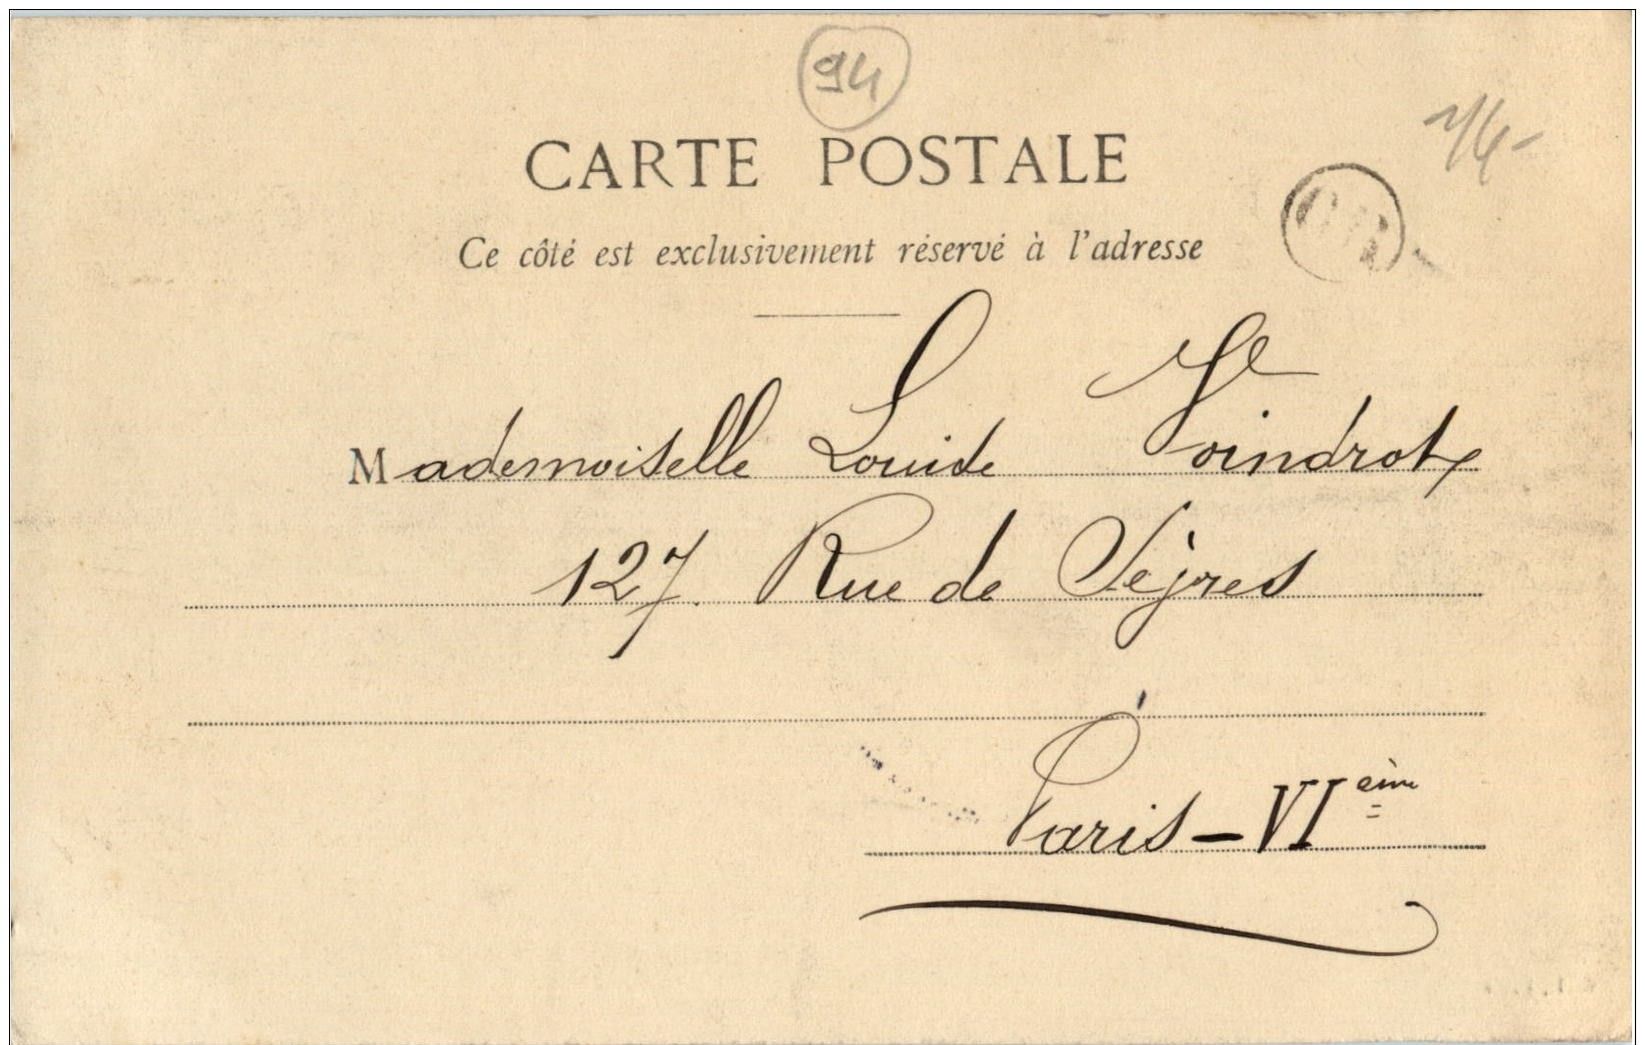 94
CARTE POSTALE
Ce côté est exclusivement réservé à l'adresse
Mademoiselle Louise Voindrot
127 Rue de Sèvres
Paris - VIème